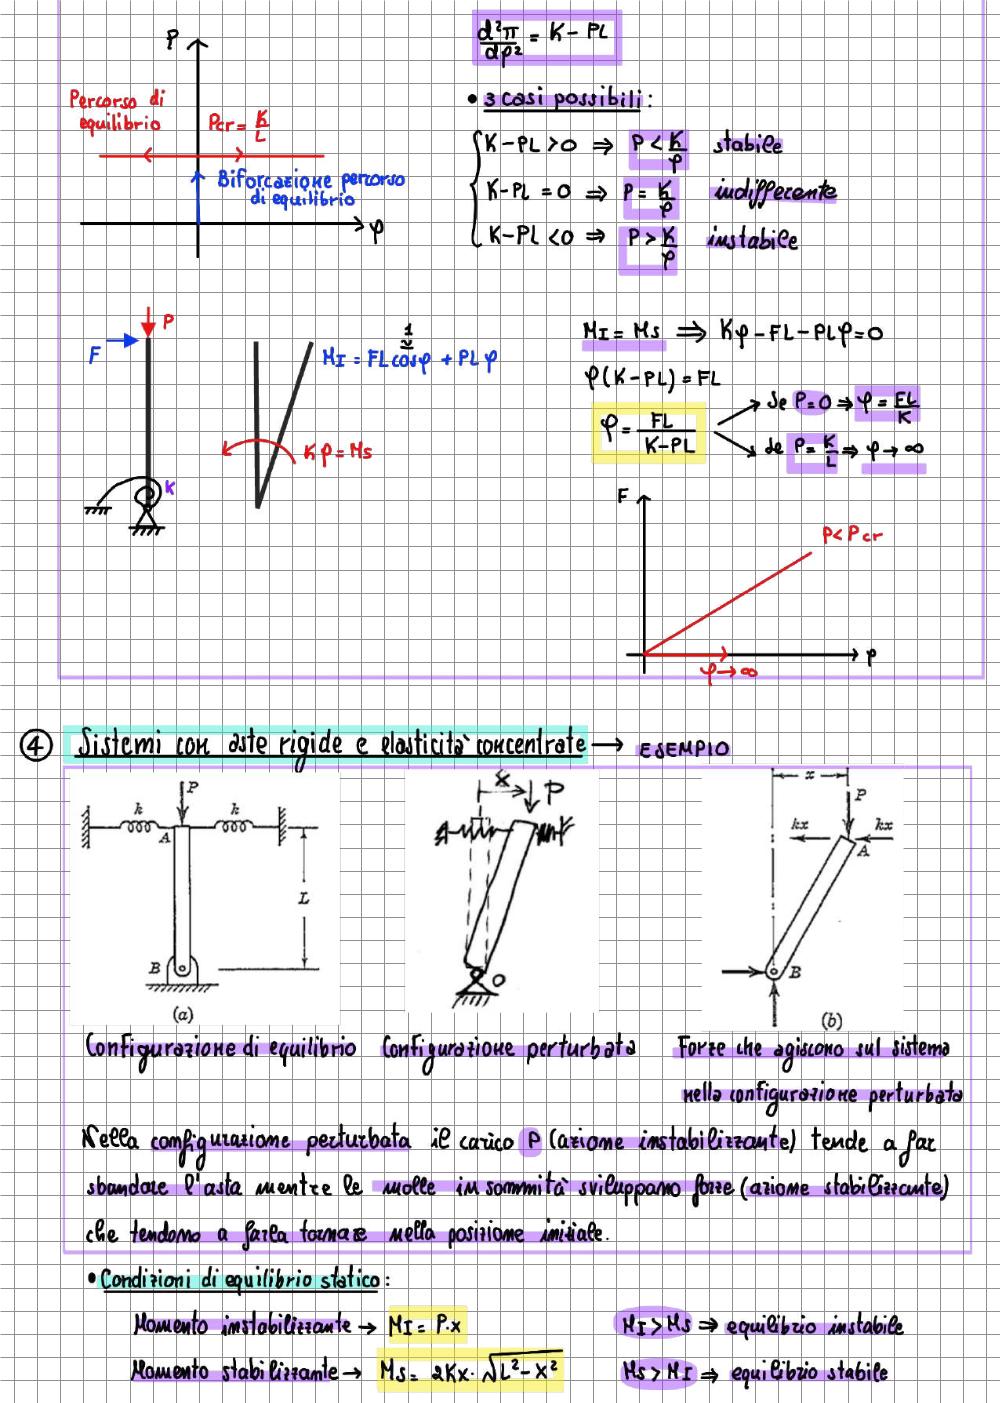 d²π/dφ² = K - PL
P
• 3 casi possibili:
Percorso di
equilibrio
Pcr = K/L
K-PL>0 ⇒ P < K/φ stabile
Biforcazione percorso
di equilibrio
K-PL = 0 ⇒ P = K/φ indifferente
φ
K-PL <0 ⇒ P > K/φ instabile
P
F
1
MI = FL cosφ + PL φ
MI = Ms ⇒ Kφ-FL-PLφ=0
φ(K-PL) = FL
φ = FL/(K-PL)
se P=0 ⇒ φ = FL/K
se P = K/L ⇒ φ → ∞
Kφ = Ms
K
F
P< Pcr
φ
φ→∞
④ Sistemi con aste rigide e elasticità concentrate → ESEMPIO
P
k
k
A
L
B
(a)
x
P
O
x
P
kx
kx
A
B
(b)
Configurazione di equilibrio
Configurazione perturbata
Forze che agiscono sul sistema
nella configurazione perturbata
Nella configurazione perturbata il carico P (azione instabilizzante) tende a far
sbandare l'asta mentre le molle in sommità sviluppano forze (azione stabilizzante)
che tendono a farla tornare nella posizione iniziale.
• Condizioni di equilibrio statico:
Momento instabilizzante → MI = P·x
MI > Ms ⇒ equilibrio instabile
Momento stabilizzante → Ms = 2Kx · √L²-x²
Ms > MI ⇒ equilibrio stabile